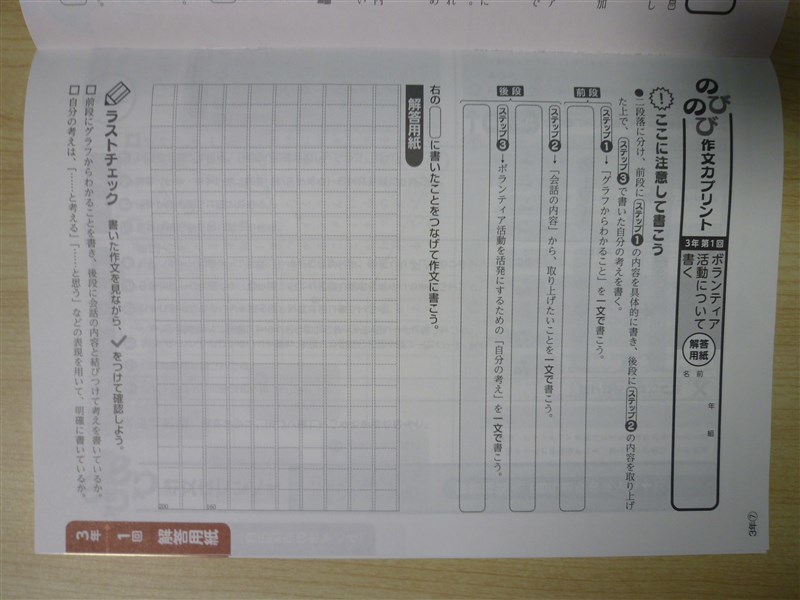 のびのび 作文力プリント
3年 第1回
ボランティア
活動について
書く
解答
用紙
年 組
名前
! ここに注意して書こう
●二段落に分け、前段にステップ1の内容を具体的に書き、後段にステップ2の内容を取り上げ
た上で、ステップ3で書いた自分の考えを書く。
前段
ステップ1→「グラフからわかること」を一文で書こう。
後段
ステップ2→「会話の内容」から、取り上げたいことを一文で書こう。
ステップ3→ボランティア活動を活発にするための「自分の考え」を一文で書こう。
右の に書いたことをつなげて作文に書こう。
解答用紙
ラストチェック 書いた作文を見ながら、✓をつけて確認しよう。
□ 前段にグラフからわかることを書き、後段に会話の内容と結びつけて考えを書いているか。
□ 自分の考えは、「……と考える」「……と思う」などの表現を用いて、明確に書いているか。
3年⑦
3年 1回 解答用紙